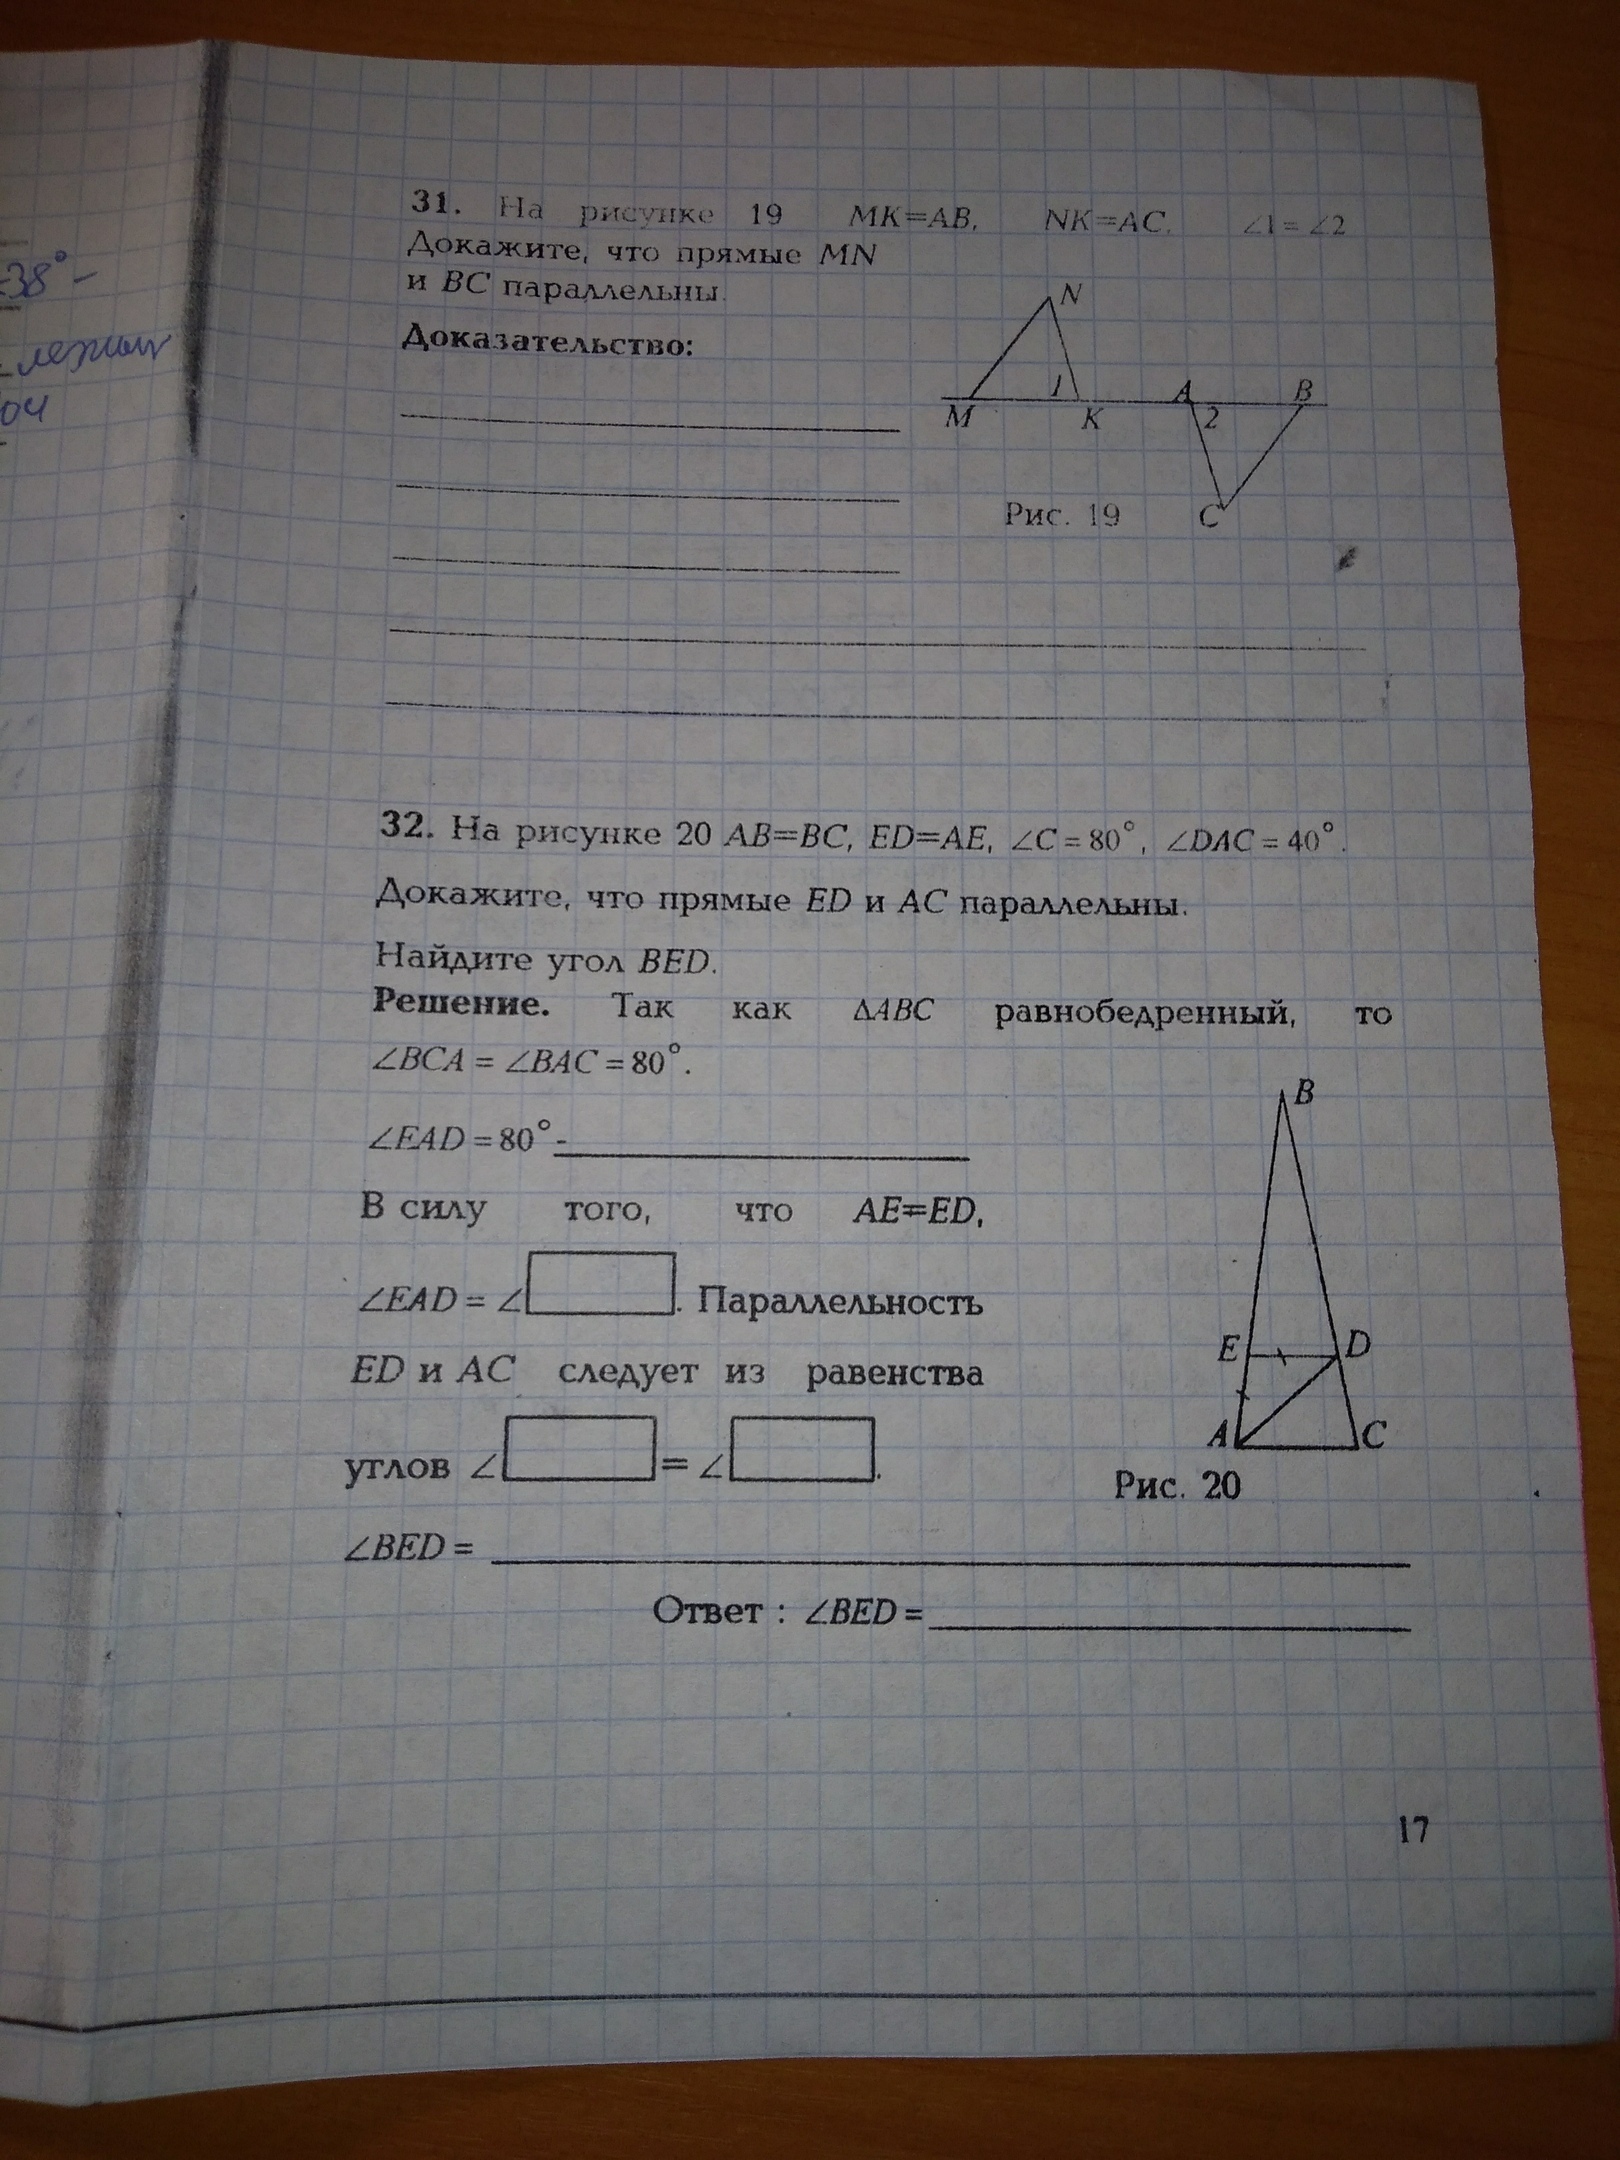 -38° -
лежит
04
31. На рисунке 19 MK=AB, NK=AC. ∠1 = ∠2
Докажите, что прямые MN
и BC параллельны.
Доказательство:
N
1
A
B
M
K
2
C
Рис. 19
32. На рисунке 20 AB=BC, ED=AE, ∠C = 80°, ∠DAC = 40°.
Докажите, что прямые ED и AC параллельны.
Найдите угол BED.
Решение. Так как ΔABC равнобедренный, то
∠BCA = ∠BAC = 80°.
∠EAD = 80° -
В силу того, что AE=ED,
∠EAD = ∠ . Параллельность
ED и AC следует из равенства
углов ∠ = ∠ .
B
E
D
A
C
Рис. 20
∠BED =
Ответ : ∠BED =
17